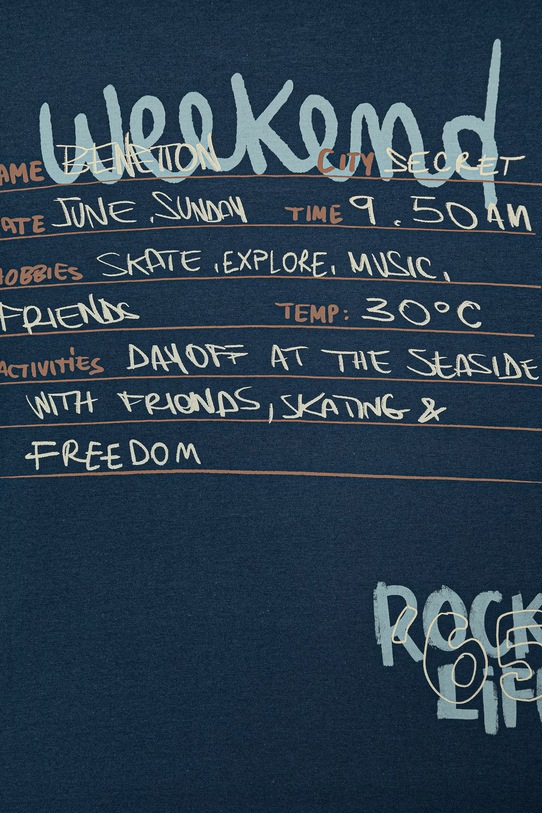 weekend
AME BENETTON CITY SECRET
ATE JUNE, SUNDAY TIME 9.50 AM
HOBBIES SKATE, EXPLORE, MUSIC,
FRIENDS TEMP: 30°C
ACTIVITIES DAYOFF AT THE SEASIDE
WITH FRIONDS, SKATING &
FREEDOM
ROCK
'65
LiF